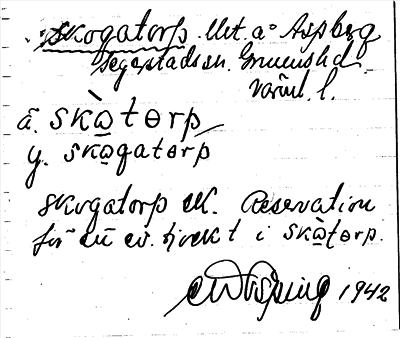 Skogatorp. Utt. a° Aspberg
Segerstads sn. Grums hd.
Värml. l.
ä. skὼtɵrp
y. skω̲gatɵrp
Skogatorp uk. Reservation
för ett ev. tjockt t i skὼtɵrp.
1942